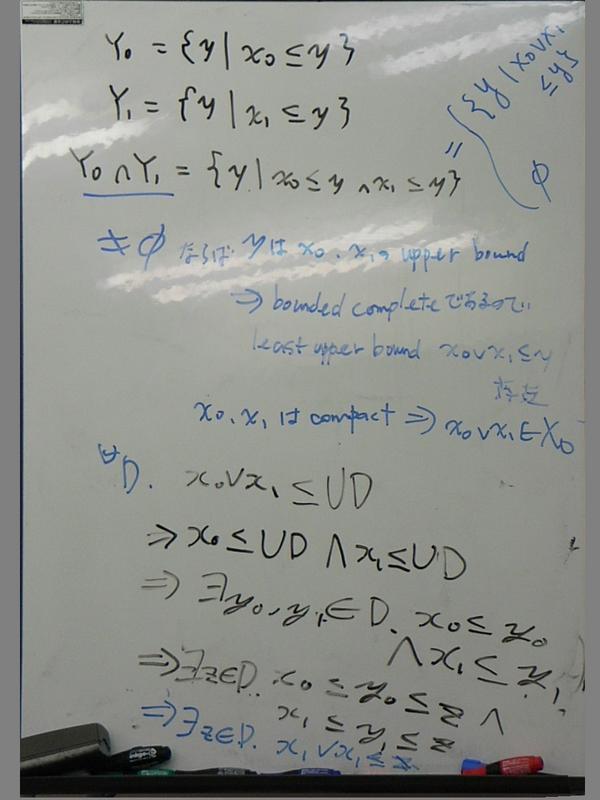 Y₀ = {y | x₀ ≤ y}
Y₁ = {y | x₁ ≤ y}
Y₀ ∩ Y₁ = {y | x₀ ≤ y ∧ x₁ ≤ y}
= {y | x₀∨x₁ ≤ y}
φ
≠ φ ならば yは x₀, x₁の upper bound
⇒ bounded complete であるので,
least upper bound x₀∨x₁ ≤ y
存在
x₀, x₁ は compact ⇒ x₀∨x₁ ∈ X₀
∀D. x₀∨x₁ ≤ ∪D
⇒ x₀ ≤ ∪D ∧ x₁ ≤ ∪D
⇒ ∃y₀, y₁ ∈ D. x₀ ≤ y₀
∧ x₁ ≤ y₁
⇒ ∃z∈D. x₀ ≤ y₀ ≤ z ∧
x₁ ≤ y₁ ≤ z
⇒ ∃z∈D. x₁∨x₁ ≤ z